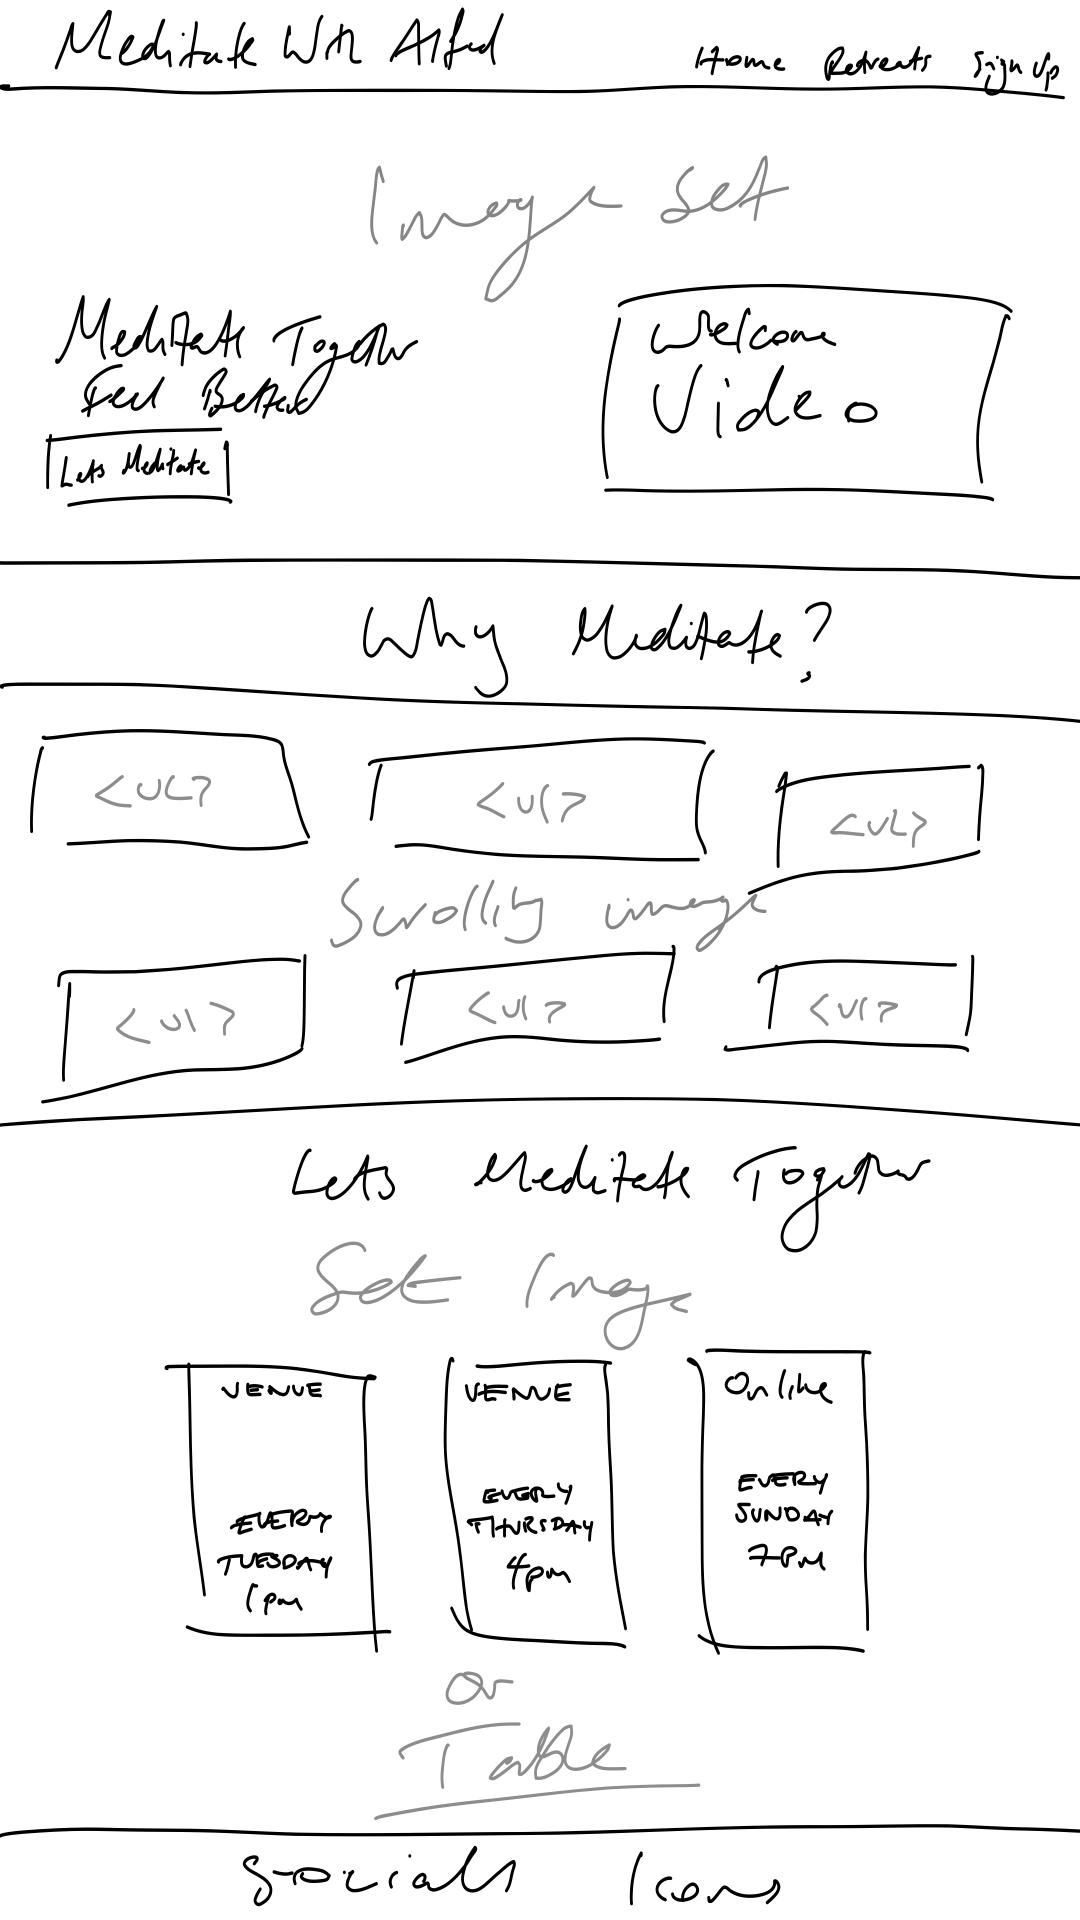 Meditate With Alfred
Home Retreats Sign Up
Image Set
Meditate Together
Feel Better
Lets Meditate
Welcome
Video
Why Meditate?
<UL> <ul> <UL>
Scrolling image
<ul> <ul> <ul>
Lets Meditate Together
Set Image
VENUE
EVERY
TUESDAY
1pm
VENUE
EVERY
THURSDAY
4pm
Online
EVERY
SUNDAY
7PM
or
Table
Socials Icons